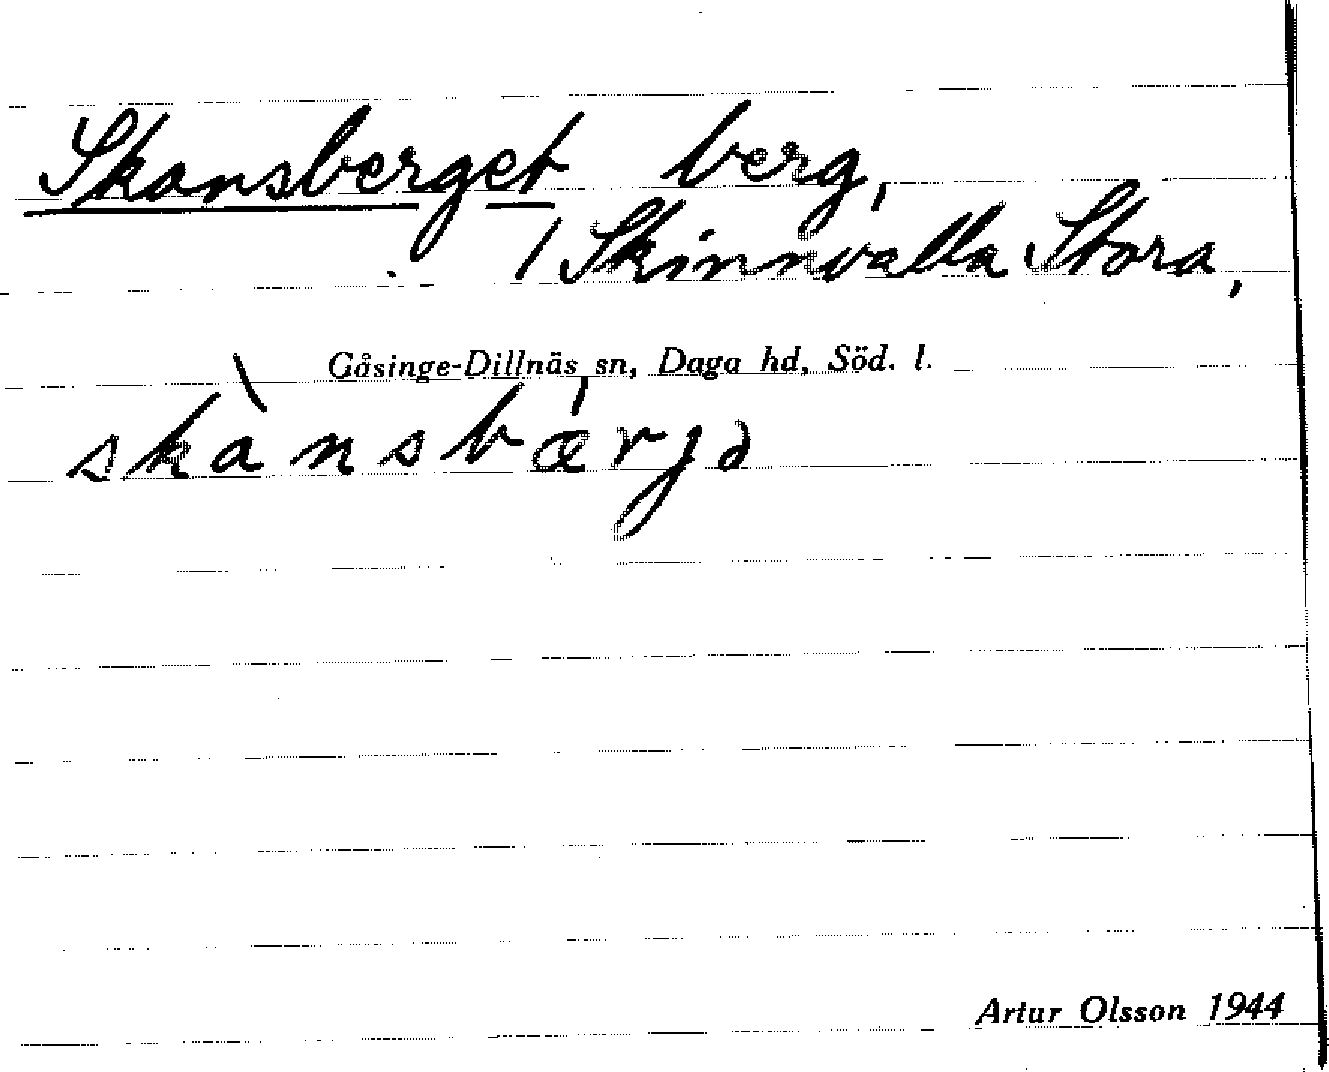 Skansberget berg,
/ Skinnvalla Stora,
Gåsinge-Dillnäs sn, Daga hd, Söd. l.
skànsbærjə
Artur Olsson 1944